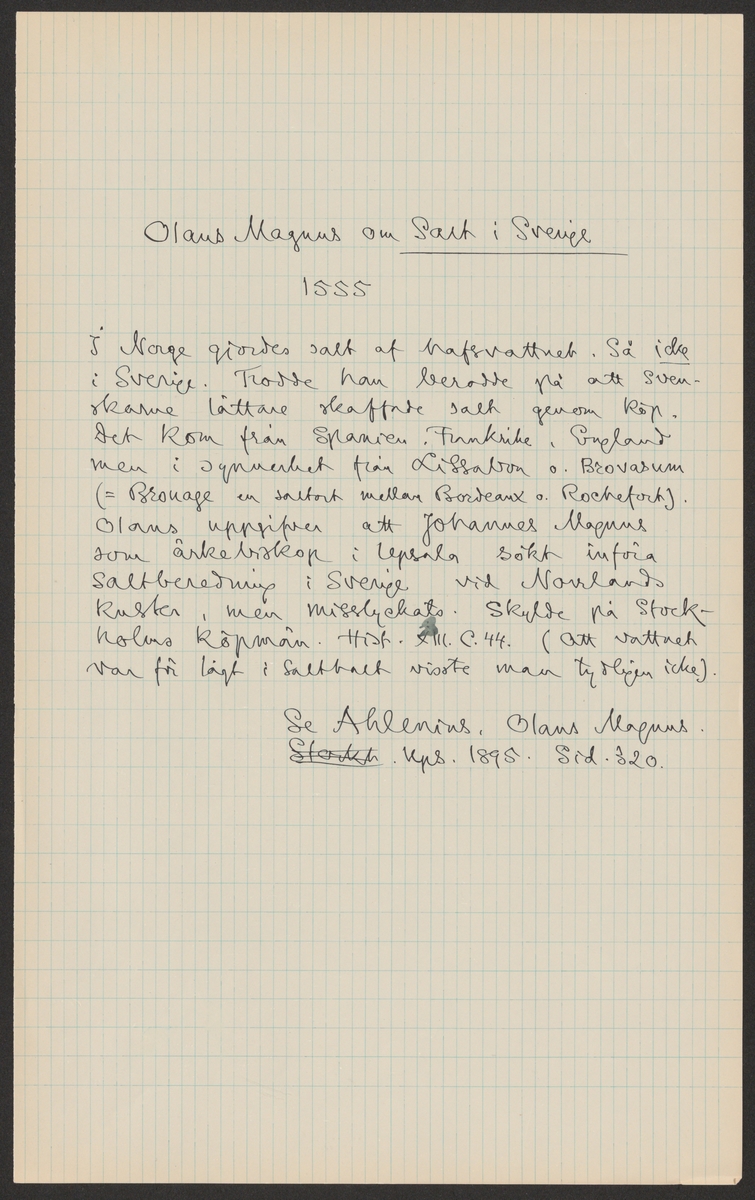 Olaus Magnus om Salt i Sverige
1555
I Norge gjordes salt af hafsvattnet. Så icke
i Sverige. Trodde han berodde på att Sven-
skarne lättare skaffade salt genom köp.
Det kom från Spanien, Frankrike, England
men i synnerhet från Lissabon o. Brovasum
(= Brouage en saltort mellan Bordeaux o. Rochefort).
Olaus uppgifver att Johannes Magnus
som ärkebiskop i Upsala sökt införa
Saltberedning i Sverige vid Norrlands
kuster, men misslyckats. Skylde på Stock-
holms köpmän. Hist. XIII. C. 44. (Att vattnet
var för lågt i Salthalt visste man tydligen icke).
Se Ahlenius, Olaus Magnus.
Stockh. Ups. 1895. Sid. 320.